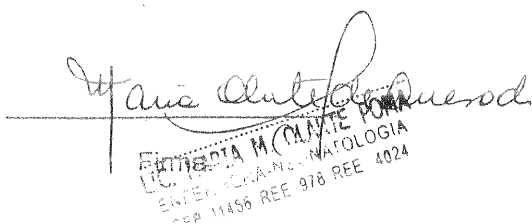 Maria Olarte de Quesada
Firma:
LIC. MARIA M. OLARTE POMA
ENFERMERA-NEONATOLOGIA
CEP 11456 REE 978 REE 4024